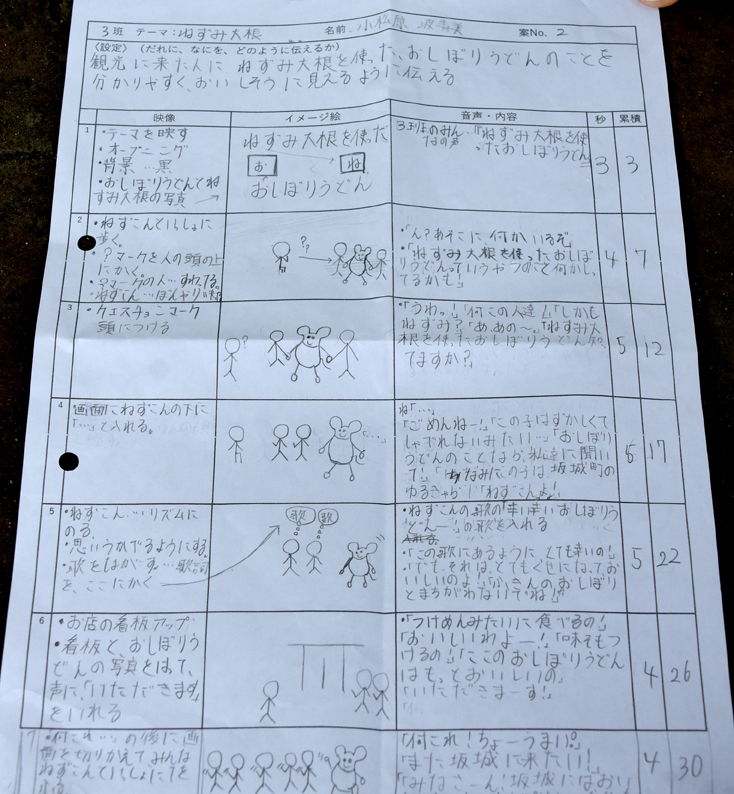 3班 テーマ:ねずみ大根 名前 小松原 案No. 2
〈設定〉(だれに、なにを、どのように伝えるか)
観光に来た人に ねずみ大根を使った、おしぼりうどんのことを
分かりやすく、おいしそうに見えるように伝える
映像 イメージ絵 音声・内容 秒 累積
1
・テーマを映す
・オープニング
・背景…黒
・おしぼりうどんとね
ずみ大根の写真
ねずみ大根を使った
お ね
おしぼりうどん
3班のみん
なの声
「ねずみ大根を使
ったおしぼりうどん」
3 3
2
・ねずこんといっしょに
歩く。
・?マークを人の頭の上
にかく
・?マークの人…すわってる。
??
・「ん?あそこに何かいるぞ」
・「ねずみ大根を使ったおしぼ
りうどんっていうやつのこと何かしっ
てるかも!」
4 7
3
・クエスチョンマーク
頭につける
?
・「うわっ!」「何この人達!」「しかも
ねずみ?」「あ、あの〜」「ねずみ大
根を使ったおしぼりうどん知っ
てますか?」
5 12
4
・画面にねずこんの下に
「…」と入れる。
「…」
ね「…」
「ごめんねー!」「この子はずかしくて
しゃべれないみたい…」「おしぼり
うどんのことなら、私達に聞い
て!」「ちなみにこの子は坂城町の
ゆるきゃら「ねずこんよ!」
5 17
5
・ねずこん…リズムに
のる。
・思いうかべるようにする。
・歌をはがす…歌詞
を、ここにかく
歌 歌
・ねずこんの歌の「辛い辛いおしぼりう
どんー」の歌を入れる
・「この歌にあるように、とても辛いの!」
・「でも、それは、とてもくせになって、お
いしいのよ!」「ぶたさんのおしぼり
とまちがわないでね!」
5 22
6
・お店の看板アップ
・看板と、おしぼりう
どんの写真をはって、
声に、「いただきます」
をいれる
「つけめんみたいに食べるの!」
「おいしいわよー!」「味そもつ
けるの!」「ここのおしぼりうどん
はもっとおいしいの」
「いただきまーす!」
4 26
7
・何これ…の後に画
面を切りかえてみんな
ねずこんといっしょに
「何これ!ちょーうまい。」
「また坂城に来たい!」
「みなさーん!坂城には
4 30